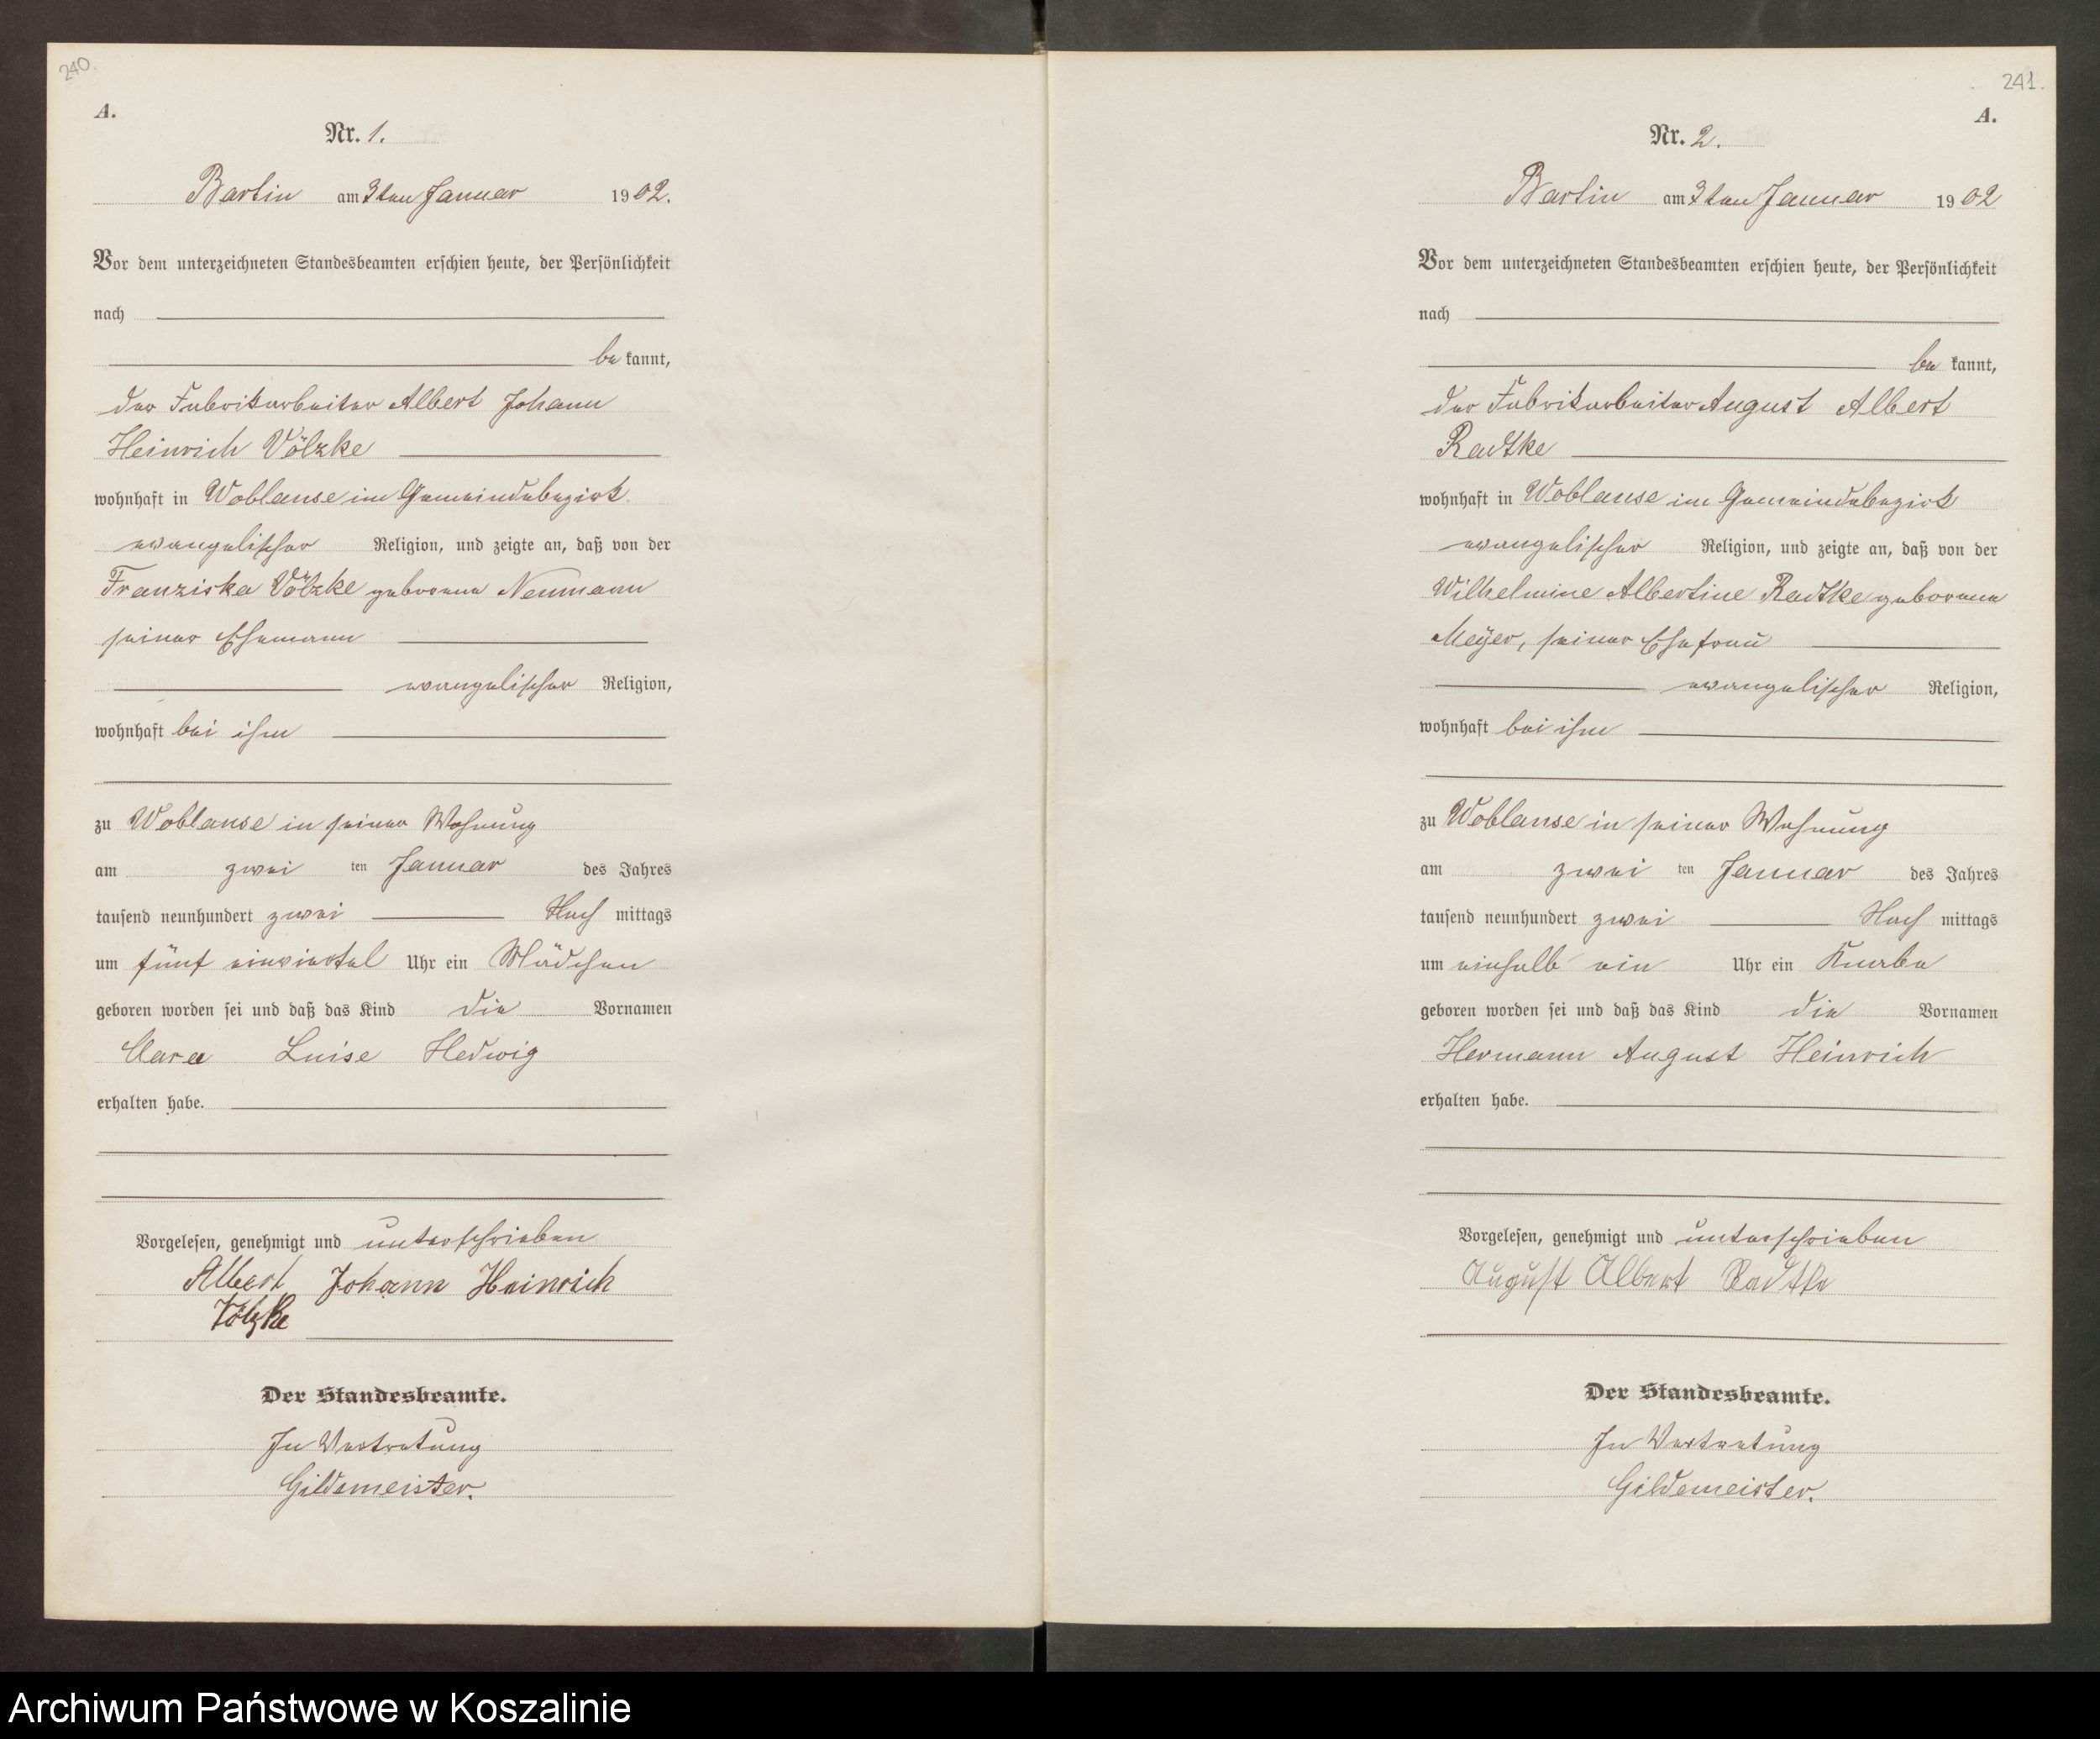 240.
A.
Nr. 1.
Bartin am 3ten Januar 1902.
Vor dem unterzeichneten Standesbeamten erschien heute, der Persönlichkeit
nach
bekannt,
der Fabrikarbeiter Albert Johann
Heinrich Völzke
wohnhaft in Woblanse im Gemeindebezirk
evangelischer Religion, und zeigte an, daß von der
Franziska Völzke geborene Neumann
seiner Ehemann
evangelischer Religion,
wohnhaft bei ihm
zu Woblanse in seiner Wohnung
am zwei ten Januar des Jahres
tausend neunhundert zwei Nach mittags
um fünf einviertel Uhr ein Mädchen
geboren worden sei und daß das Kind die Vornamen
Clara Luise Hedwig
erhalten habe.
Vorgelesen, genehmigt und unterschrieben
Albert Johann Heinrich
Völzke
Der Standesbeamte.
In Vertretung
Gildemeister.
241.
A.
Nr. 2.
Bartin am 3ten Januar 1902
Vor dem unterzeichneten Standesbeamten erschien heute, der Persönlichkeit
nach
bekannt,
der Fabrikarbeiter August Albert
Radtke
wohnhaft in Woblanse im Gemeindebezirk
evangelischer Religion, und zeigte an, daß von der
Wilhelmine Albertine Radtke geborene
Meÿer, seiner Ehefrau
evangelischer Religion,
wohnhaft bei ihm
zu Woblanse in seiner Wohnung
am zwei ten Januar des Jahres
tausend neunhundert zwei Nach mittags
um einhalb ein Uhr ein Knabe
geboren worden sei und daß das Kind die Vornamen
Hermann August Heinrich
erhalten habe.
Vorgelesen, genehmigt und unterschrieben
August Albert Radtke
Der Standesbeamte.
In Vertretung
Gildemeister.
Archiwum Państwowe w Koszalinie